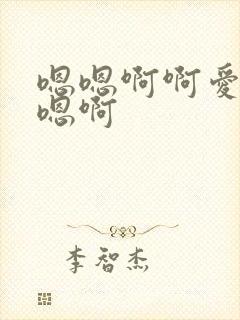 嗯嗯啊啊爱
嗯啊
李智杰